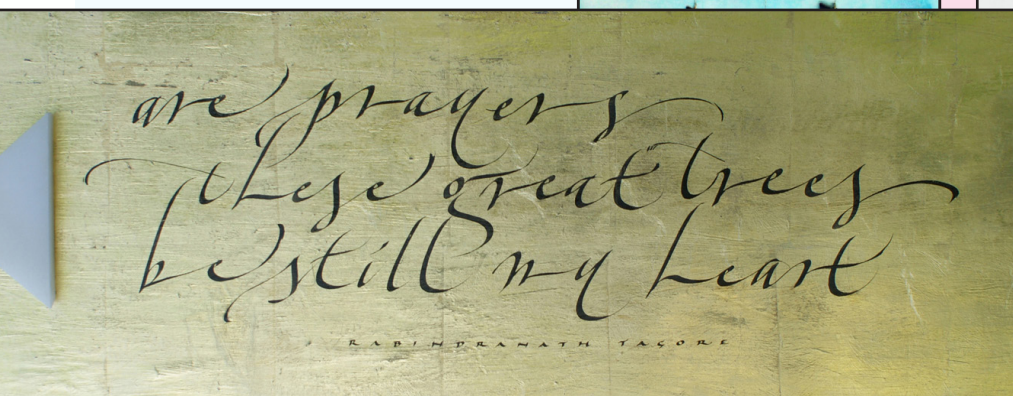 are prayers
these great trees
be still my heart
RABINDRANATH TAGORE